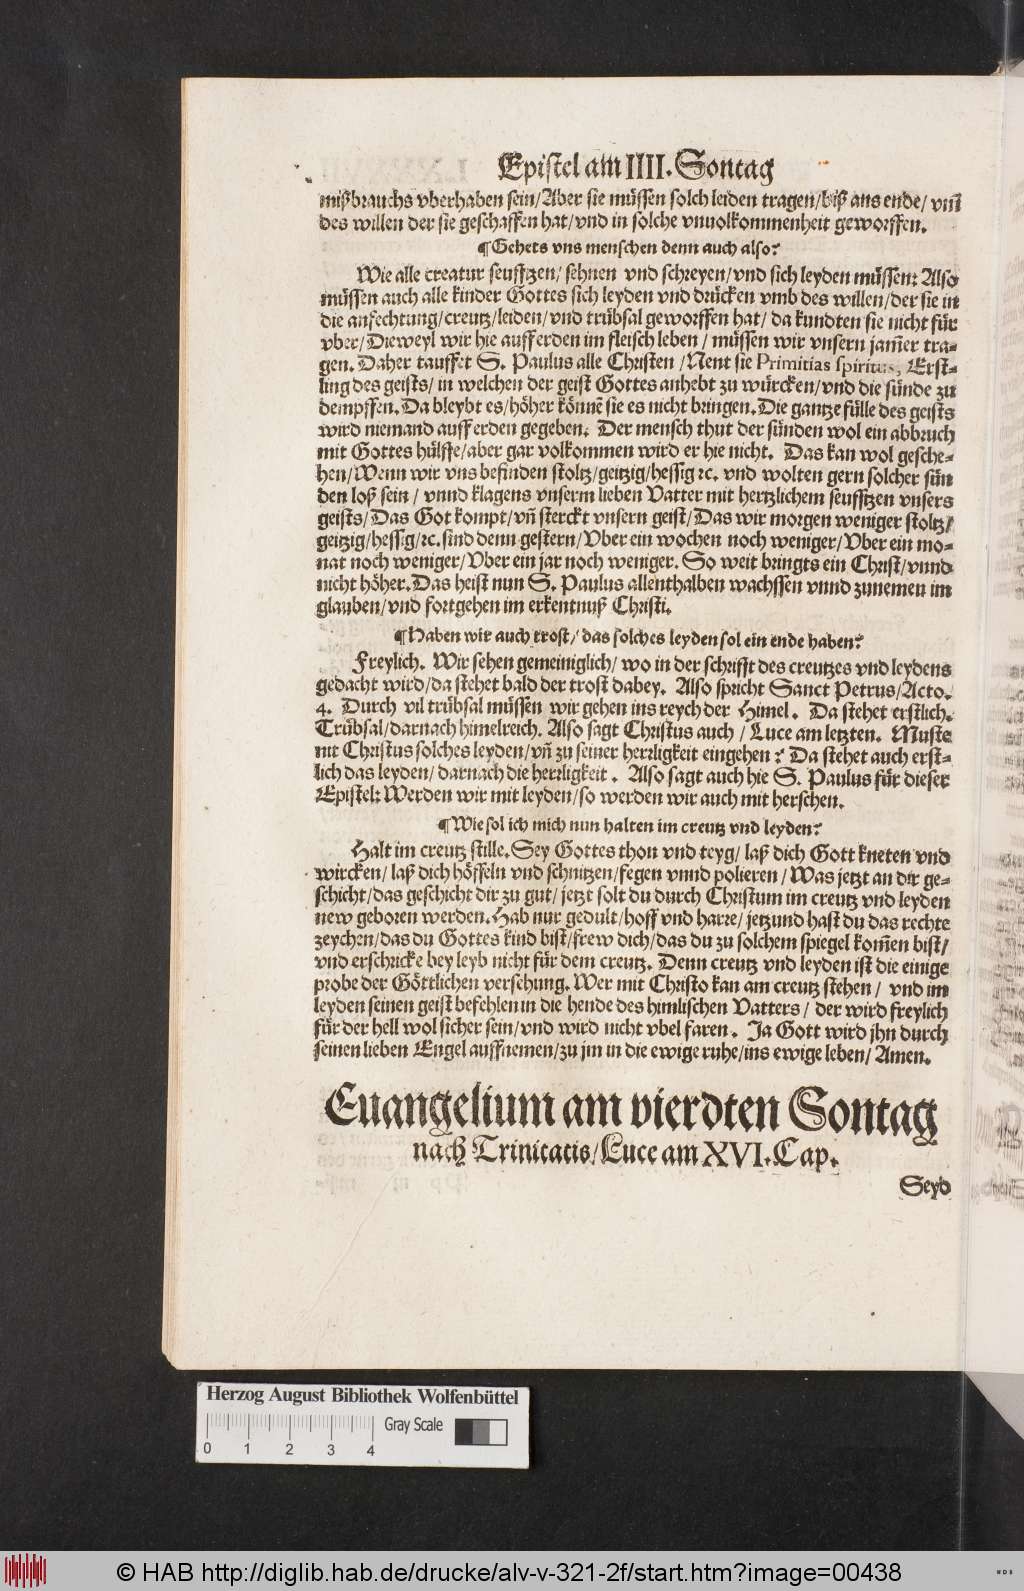 Epistel am IIII. Sontag
mißbrauchs vberhaben sein/Aber sie müssen solch leiden tragen/biß ans ende/ vm̄
des willen der sie geschaffen hat/vnd in solche vnuolkommenheit geworffen.
¶ Gehets vns menschen denn auch also?
Wie alle creatur seufftzen/ sehnen vnd schreyen/vnd sich leyden müssen: Also
müssen auch alle kinder Gottes sich leyden vnd drücken vmb des willen/der sie in
die anfechtung/creutz/leiden/vnd trübsal geworffen hat/ da kundten sie nicht für
vber/Dieweyl wir hie auff erden im fleisch leben / müssen wir vnsern jam̄er tra-
gen. Daher tauffet S. Paulus alle Christen /Nent sie Primitias spiritus, Erst-
ling des geists/ in welchen der geist Gottes anhebt zu würcken/vnd die sünde zu
dempffen. Da bleybt es/höher könnē sie es nicht bringen. Die gantze fülle des geists
wird niemand auff erden gegeben. Der mensch thut der sünden wol ein abbruch
mit Gottes hülffe/aber gar volkommen wird er hie nicht. Das kan wol gesche-
hen/Wenn wir vns befinden stoltz/geitzig/hessig ꝛc. vnd wolten gern solcher sün
den loß sein / vnnd klagens vnserm lieben Vatter mit hertzlichem seufftzen vnsers
geists/Das Got kompt/vn̄ sterckt vnsern geist/Das wir morgen weniger stoltz/
geitzig/hessig/ꝛc. sind denn gestern/Vber ein wochen noch weniger/Vber ein mo-
nat noch weniger/Vber ein jar noch weniger. So weit bringts ein Christ/vnnd
nicht höher. Das heist nun S. Paulus allenthalben wachssen vnnd zunemen im
glauben/vnd fortgehen im erkentnuß Christi.
¶ Haben wir auch trost/ das solches leyden sol ein ende haben?
Freylich. Wir sehen gemeiniglich/ wo in der schrifft des creutzes vnd leydens
gedacht wird/da stehet bald der trost dabey. Also spricht Sanct Petrus/Acto.
4. Durch vil trübsal müssen wir gehen ins reych der Himel. Da stehet erstlich.
Trübsal/darnach himelreich. Also sagt Christus auch / Luce am letzten. Muste
nit Christus solches leyden/vn̄ zu seiner herꝛligkeit eingehen? Da stehet auch erst-
lich das leyden/ darnach die herꝛligkeit. Also sagt auch hie S. Paulus für dieser
Epistel: Werden wir mit leyden/so werden wir auch mit herschen.
¶ Wie sol ich mich nun halten im creutz vnd leyden?
Halt im creutz stille. Sey Gottes thon vnd teyg/ laß dich Gott kneten vnd
wircken/ laß dich höffeln vnd schnitzen/fegen vnnd polieren / Was jetzt an dir ge-
schicht/das geschicht dir zu gut/ jetzt solt du durch Christum im creutz vnd leyden
new geboren werden. Hab nur gedult/hoff vnd harre/ jetzund hast du das rechte
zeychen/das du Gottes kind bist/frew dich/das du zu solchem spiegel kom̄en bist/
vnd erschricke bey leyb nicht für dem creutz. Denn creutz vnd leyden ist die einige
probe der Göttlichen versehung. Wer mit Christo kan am creutz stehen / vnd im
leyden seinen geist befehlen in die hende des himlischen Vatters / der wird freylich
für der hell wol sicher sein/vnd wird nicht vbel faren. Ja Gott wird jhn durch
seinen lieben Engel auffnemen/zu jm in die ewige ruhe/ins ewige leben/ Amen.
Euangelium am vierdten Sontag
nach Trinitatis/Luce am XVI. Cap.
Seyd
Herzog August Bibliothek Wolfenbüttel
Gray Scale
0 1 2 3 4
© HAB http://diglib.hab.de/drucke/alv-v-321-2f/start.htm?image=00438